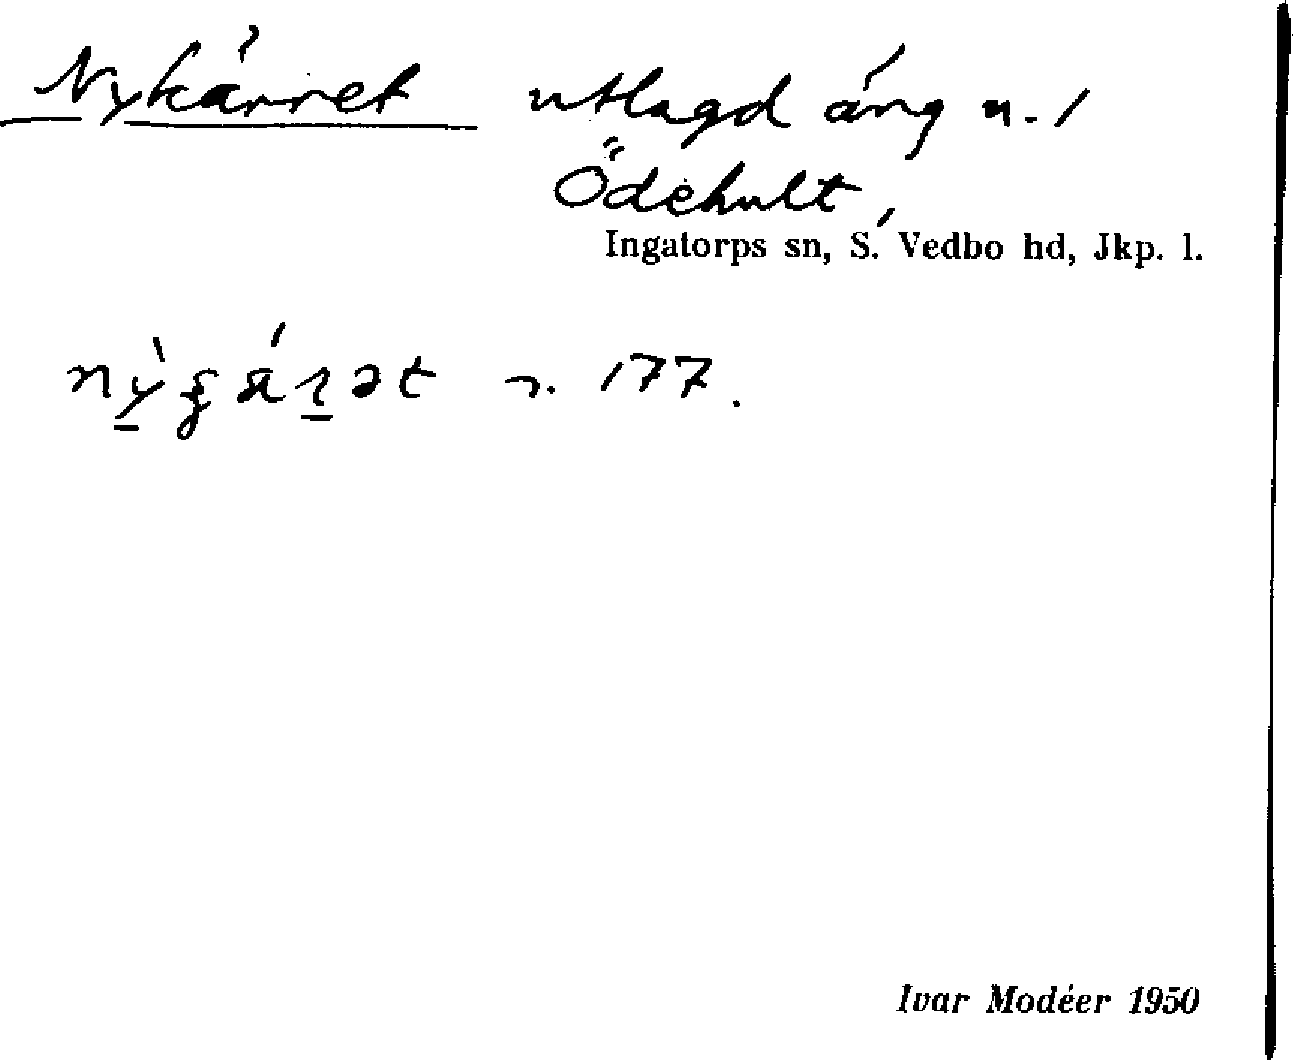 Nykärret utlagd äng u. /
Ödehult,
Ingatorps sn, S. Vedbo hd, Jkp. l.
n. 177.
Ivar Modéer 1950